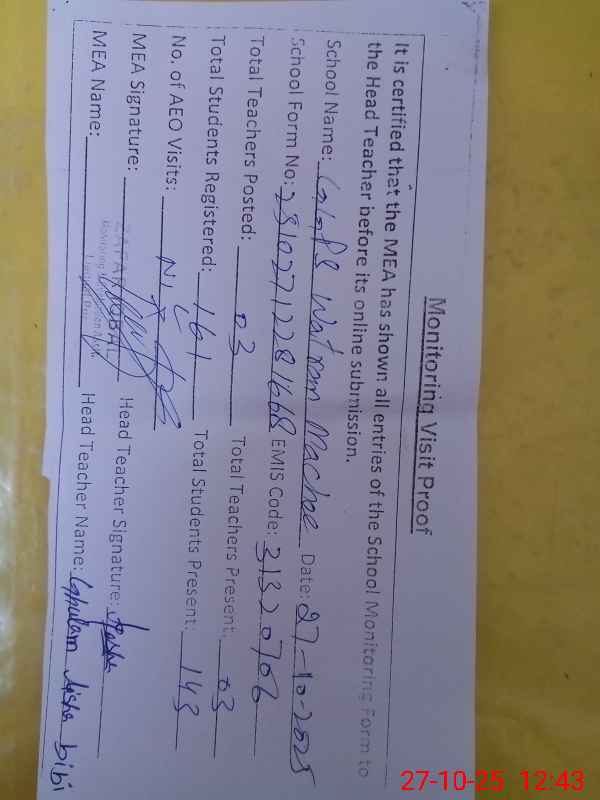 Monitoring Visit Proof
It is certified that the MEA has shown all entries of the School Monitoring Form to
the Head Teacher before its online submission.
School Name: GGPS Date: 27-10-2025
School Form No: EMIS Code: 31320706
Total Teachers Posted: 03 Total Teachers Present: 03
Total Students Registered: 161 Total Students Present: 143
No. of AEO Visits: NIL
MEA Signature: Head Teacher Signature:
ZAFAR IQBAL
MEA Name: Head Teacher Name: Ghulam Aisha bibi
27-10-25 12:43